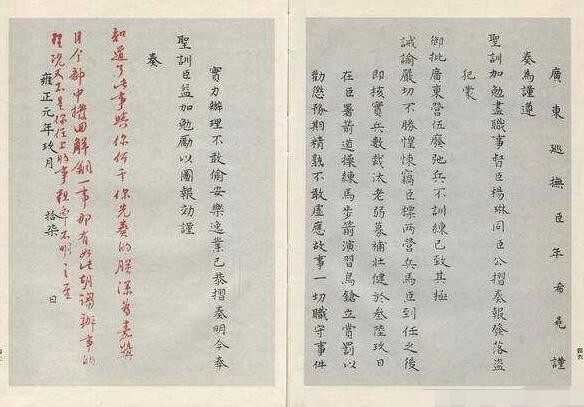 廣東巡撫臣年希堯謹
奏為謹遵
聖訓加勉盡職事督臣楊琳同臣公摺奏報發落盜
犯蒙
御批廣東營伍廢弛兵不訓練已致其極
誡諭嚴切不勝惶悚竊臣標兩營兵馬臣到任之後
即核實兵數裁汰老弱募補壯健於叁陸玖日
在臣署箭道操練馬步箭演習鳥鎗立賞罰以
勸懲務期精熟不敢虛應故事一切職守事件
實力辦理不敢偷安樂逸業已恭摺奏明今奉
聖訓臣益加勉勵以圖報効謹
奏
知道了此事與你何干你先奏的朕深為嘉獎
目今部中撥回解銅一事那有如此胡謅辦事的
理况又不是你任上的事不明之至
雍正元年玖月拾柒日